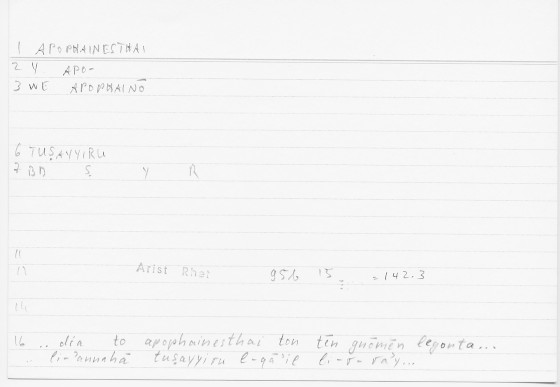 1 APOPHAINESTHAI
2 Y APO-
3 WE APOPHAINŌ
6 TUṢAYYIRU
7 BD Ṣ Y R
11
13 Arist Rhet 95b 15 = 142.3
14
16 .. dia to apophainesthai ton tēn gnōmēn legonta...
.. li-ʾannahā tuṣayyiru l-qāʾil li-r-raʾy...